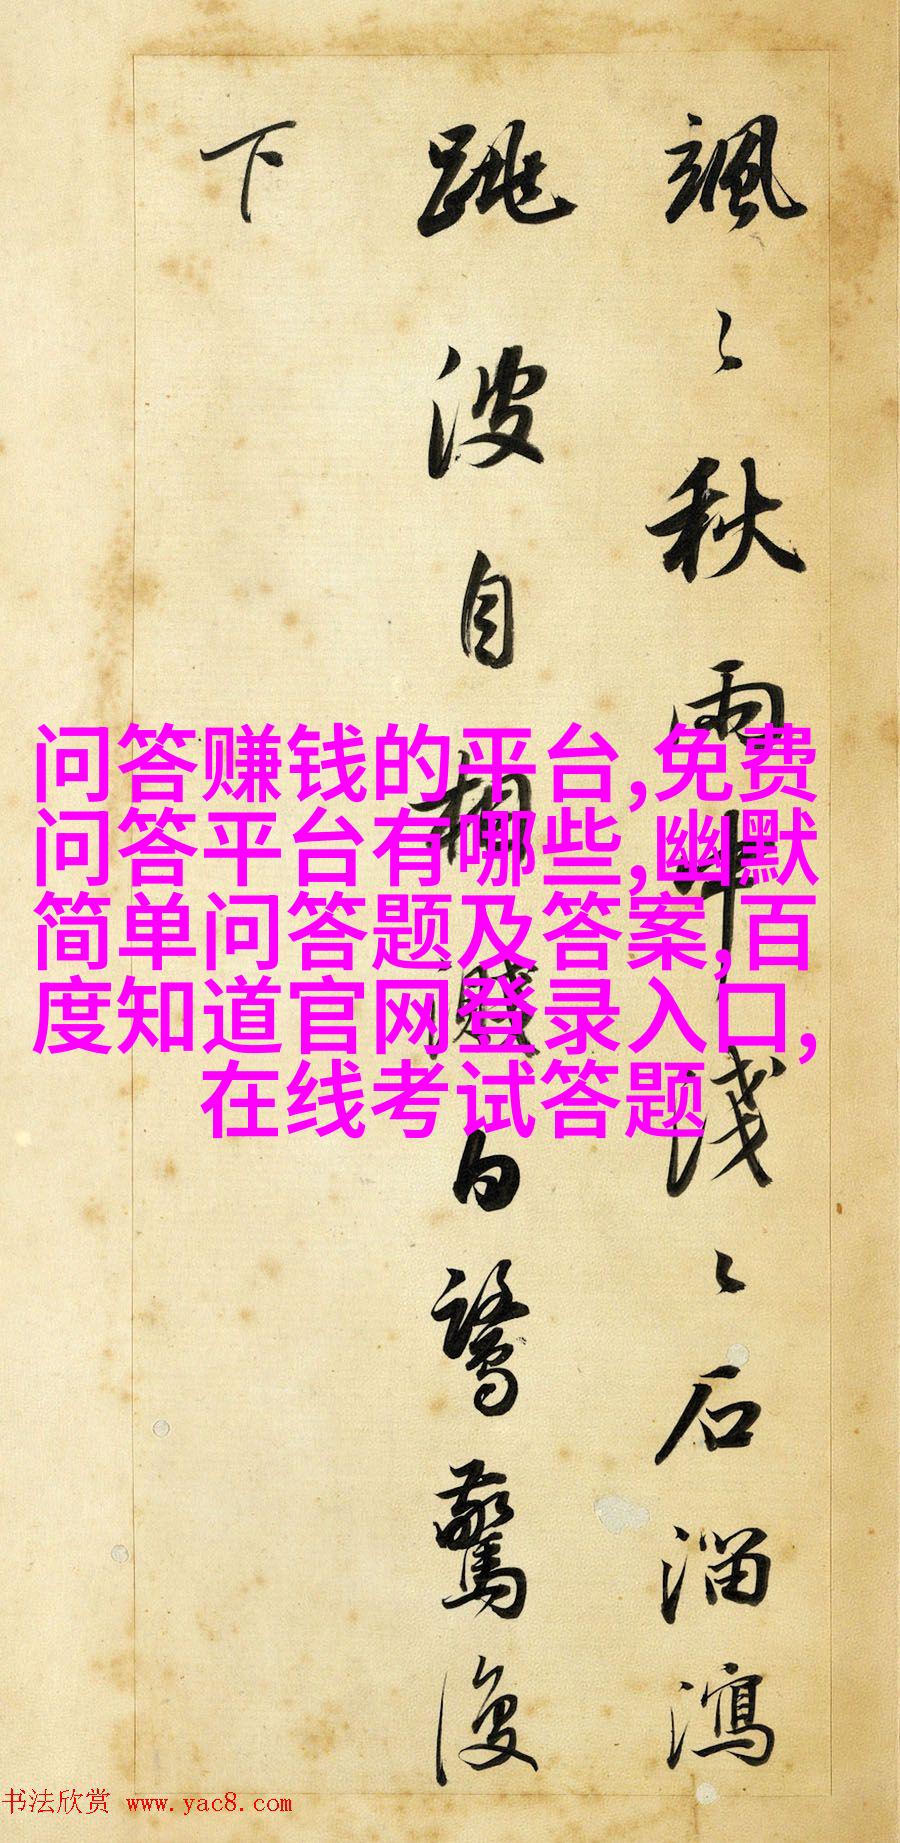 飒々秋雨中浅々石溜泻
跳波自相溅白鹭惊复
下
问答赚钱的平台,免费
问答平台有哪些,幽默
简单问答题及答案,百
度知道官网登录入口,
在线考试答题
书法欣赏 www.yac8.com